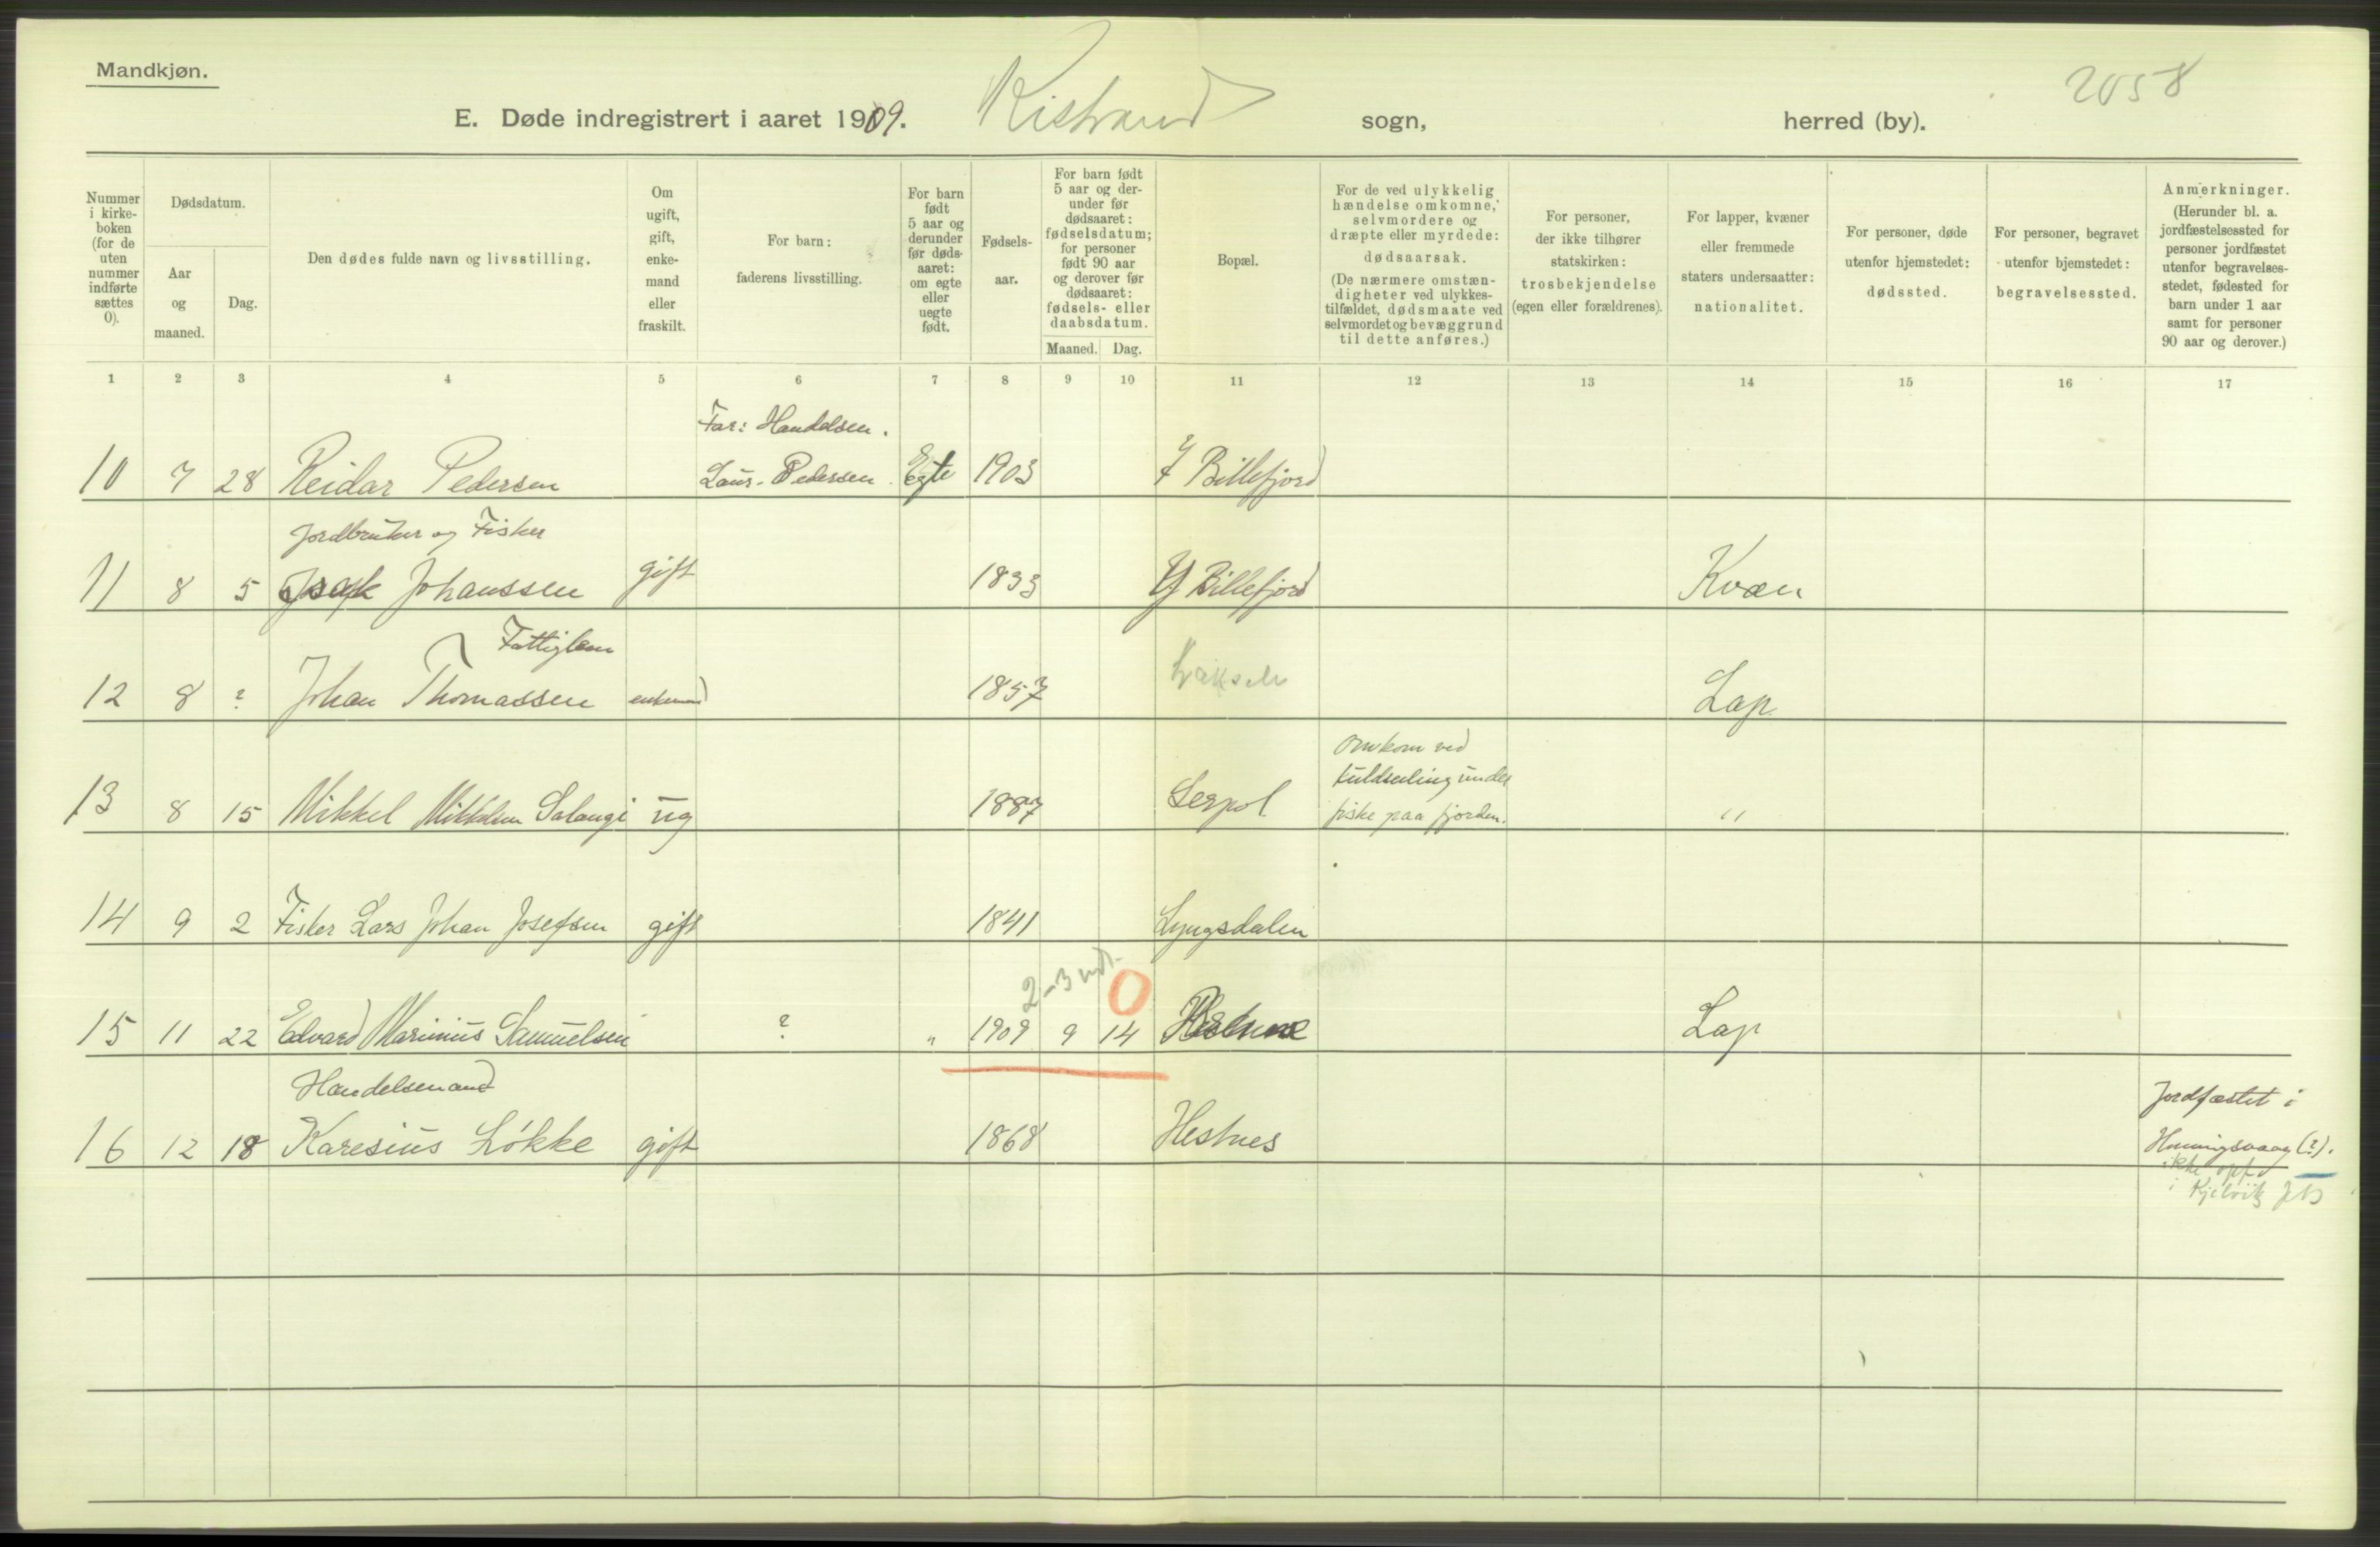 Mandkjøn.
2058
E. Døde indregistrert i aaret 1909. Kistrand sogn, herred (by).
Nummer i kirke-boken (for de uten nummer indførte sættes 0).
Dødsdatum.
Aar og maaned.
Dag.
Den dødes fulde navn og livsstilling.
Om ugift, gift, enke-mand eller fraskilt.
For barn: faderens livsstilling.
For barn født 5 aar og derunder før døds-aaret: om egte eller uegte født.
Fødsels-aar.
For barn født 5 aar og der-under før dødsaaret: fødselsdatum; for personer født 90 aar og derover før dødsaaret: fødsels- eller daabsdatum.
Maaned. Dag.
Bopæl.
For de ved ulykkelig hændelse omkomne, selvmordere og dræpte eller myrdede: dødsaarsak.
(De nærmere omstæn-digheter ved ulykkes-tilfældet, dødsmaate ved selvmordet og bevæggrund til dette anføres.)
For personer, der ikke tilhører statskirken: trosbekjendelse (egen eller forældrenes).
For lapper, kvæner eller fremmede staters undersaatter: nationalitet.
For personer, døde utenfor hjemstedet: dødssted.
For personer, begravet utenfor hjemstedet: begravelsessted.
Anmerkninger.
(Herunder bl. a. jordfæstelsessted for personer jordfæstet utenfor begravelses-stedet, fødested for barn under 1 aar samt for personer 90 aar og derover.)
1 2 3 4 5 6 7 8 9 10 11 12 13 14 15 16 17
Far: Handelsm.
10 7 28 Reidar Pedersen Laur. Pedersen Egte 1903 Y Billefjord
Jordbruker og Fisker
11 8 5 Isak Johanssen gift 1833 Y Billefjord Kvæn
Fattiglem
12 8 ? Johan Thomassen enkemand 1857 Lakselv Lap
Omkom ved
kuldseiling under
13 8 15 Mikkel Mikkelsen Salangi ug 1887 Lerpol fiske paa fjorden. "
14 9 2 Fisker Lars Johan Josefsen gift 1841 Lyngsdalen
2-3 mdr. 0
15 11 22 Edvard Marinius Samuelsen ? " 1909 9 14 Lap
Handelsmand
Jordfæstet i
16 12 18 Karesius Løkke gift 1868 Hestnes Honningsvaag (?).
ikke opf.
i Kjelvik